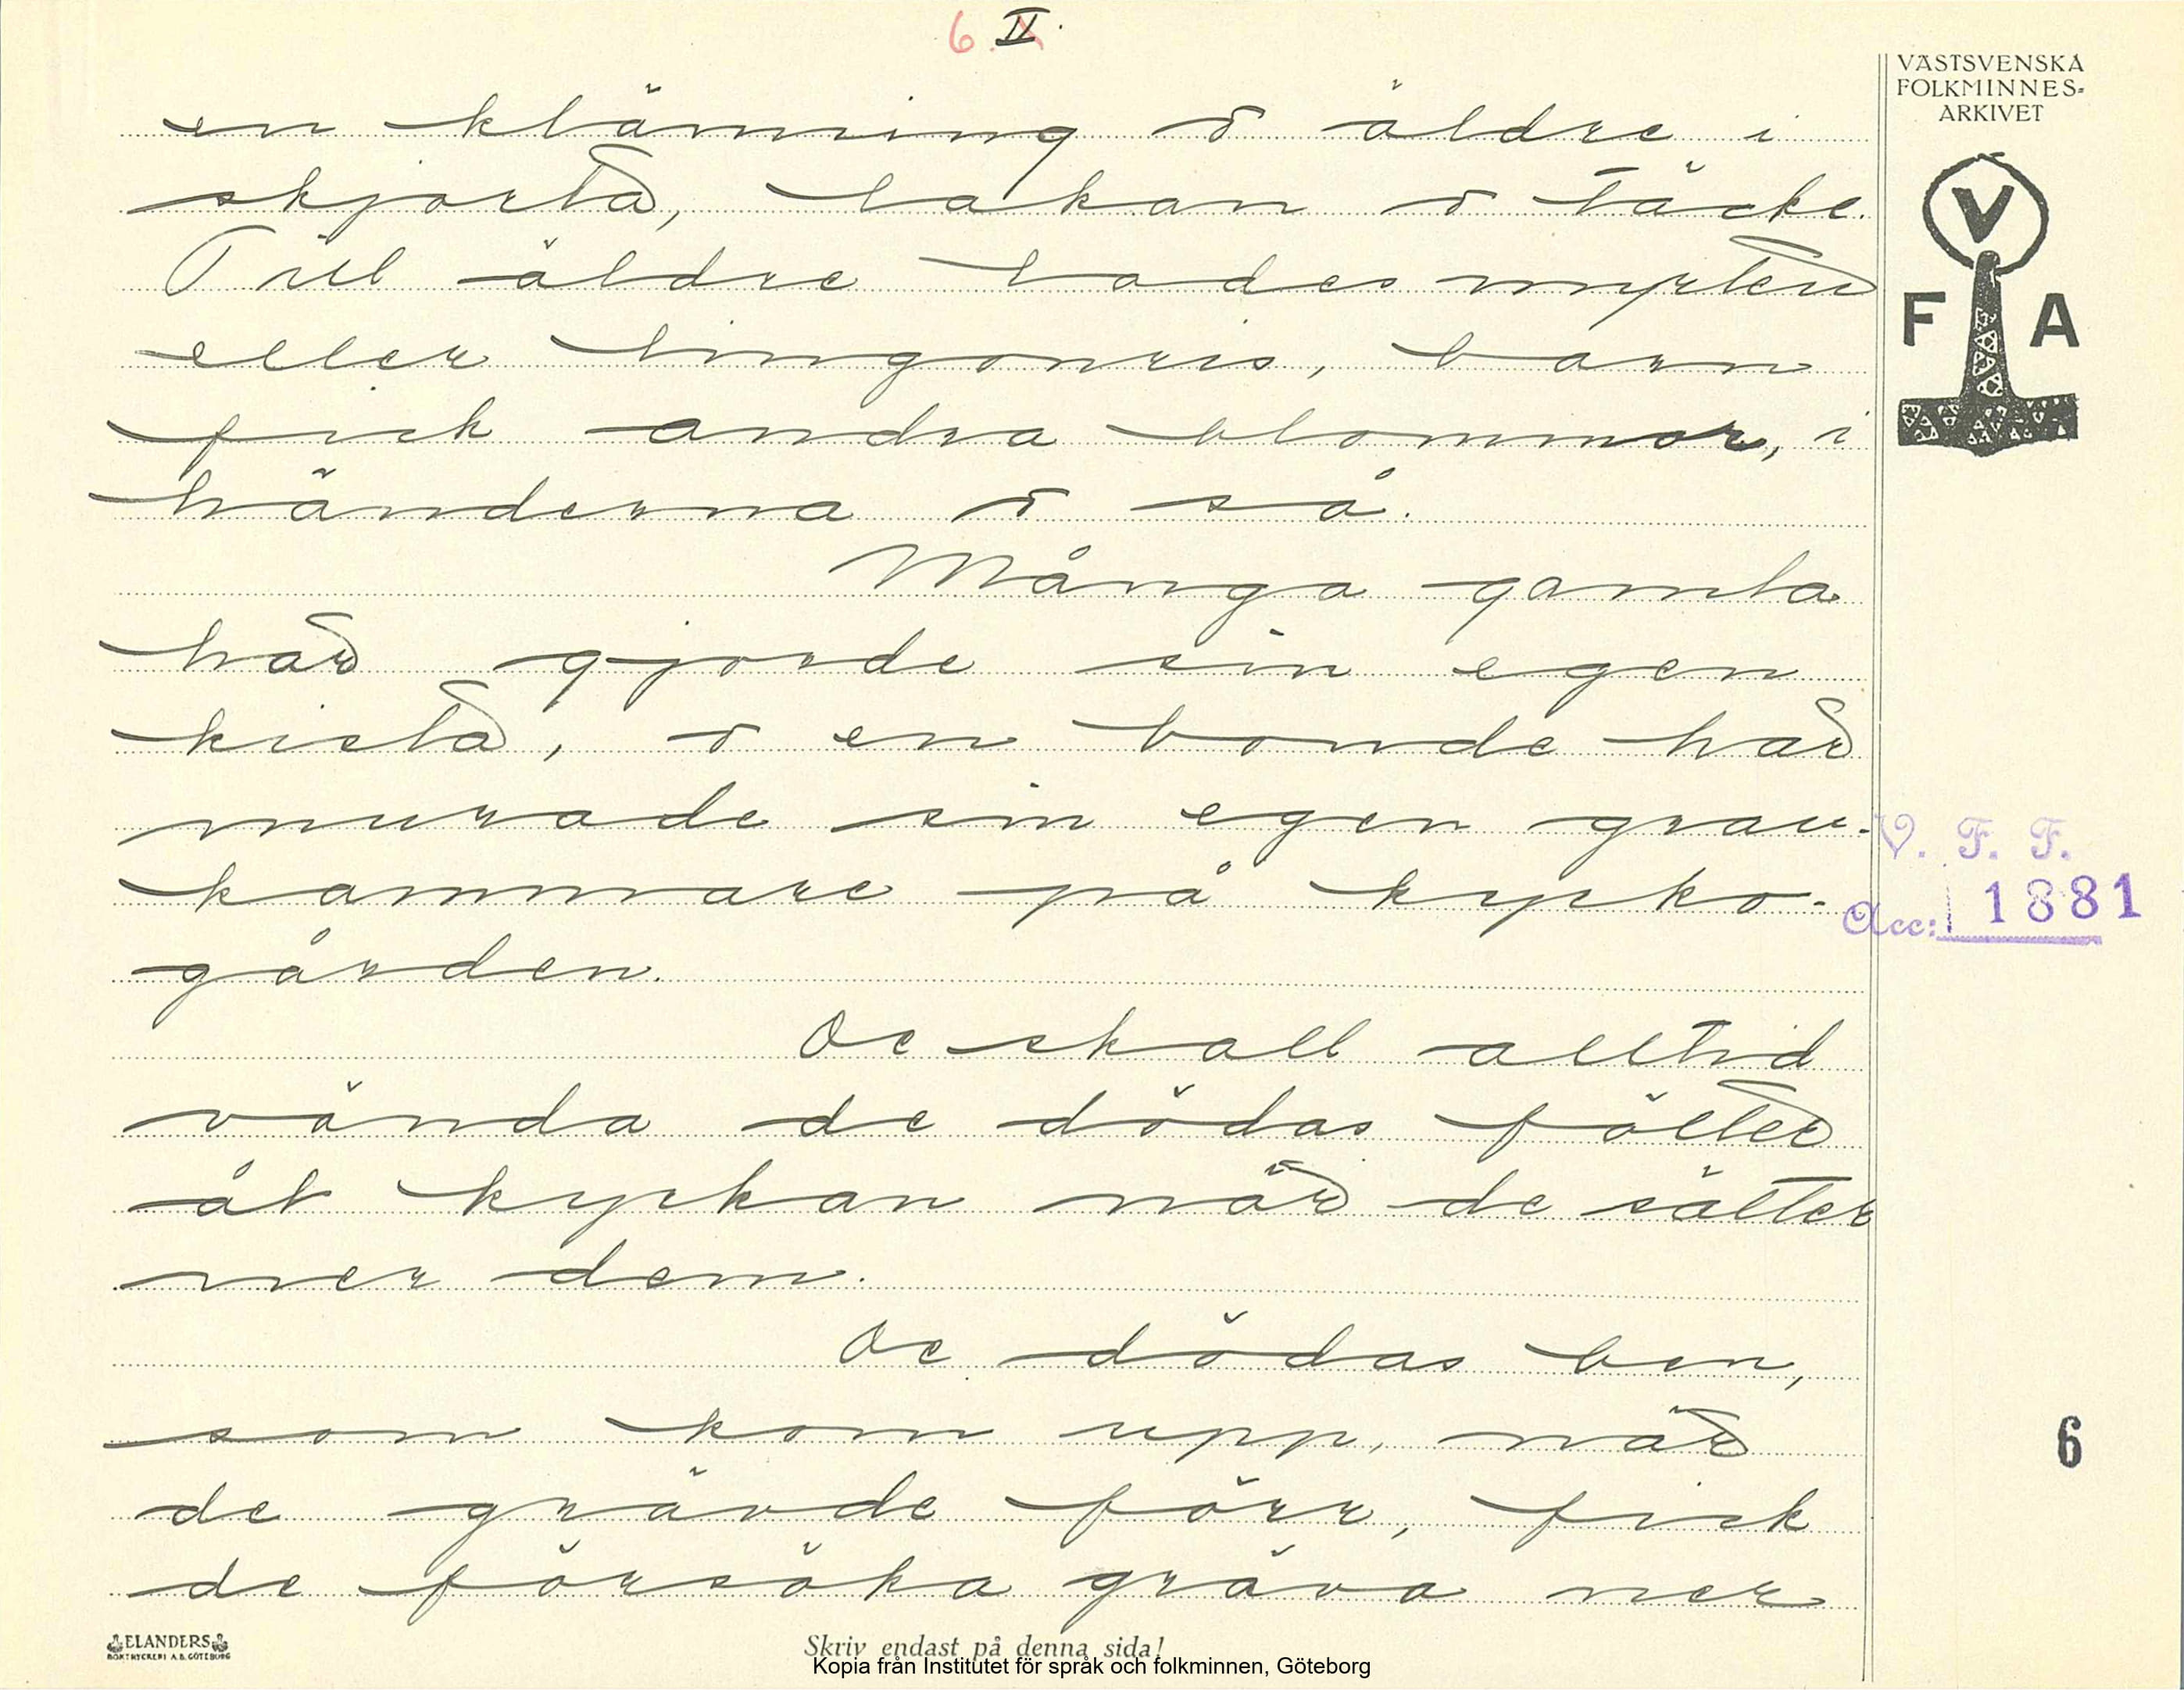 6. II.
VÄSTSVENSKA
FOLKMINNES-
ARKIVET
V
F A
en klänning o äldre i
skjorta, lakan o täcke.
Till äldre tades myrten
eller lingonris, barn
fick andra blommor, i
händerna o så.
Många gamla
har gjorde sin egen
kista, o en bonde har
murade sin egen grav-
kammare på kyrko-
gården.
V. F. F.
Acc: 1881
De skall alltid
vända de dödas fötter
åt kyrkan när de sätter
ner dem.
De dödas ben,
som kom upp, när
6
de grävde förr, fick
de försöka gräva ner
ELANDERS
BOKTRYCKERI A.B. GÖTEBORG
Skriv endast på denna sida!
Kopia från Institutet för språk och folkminnen, Göteborg